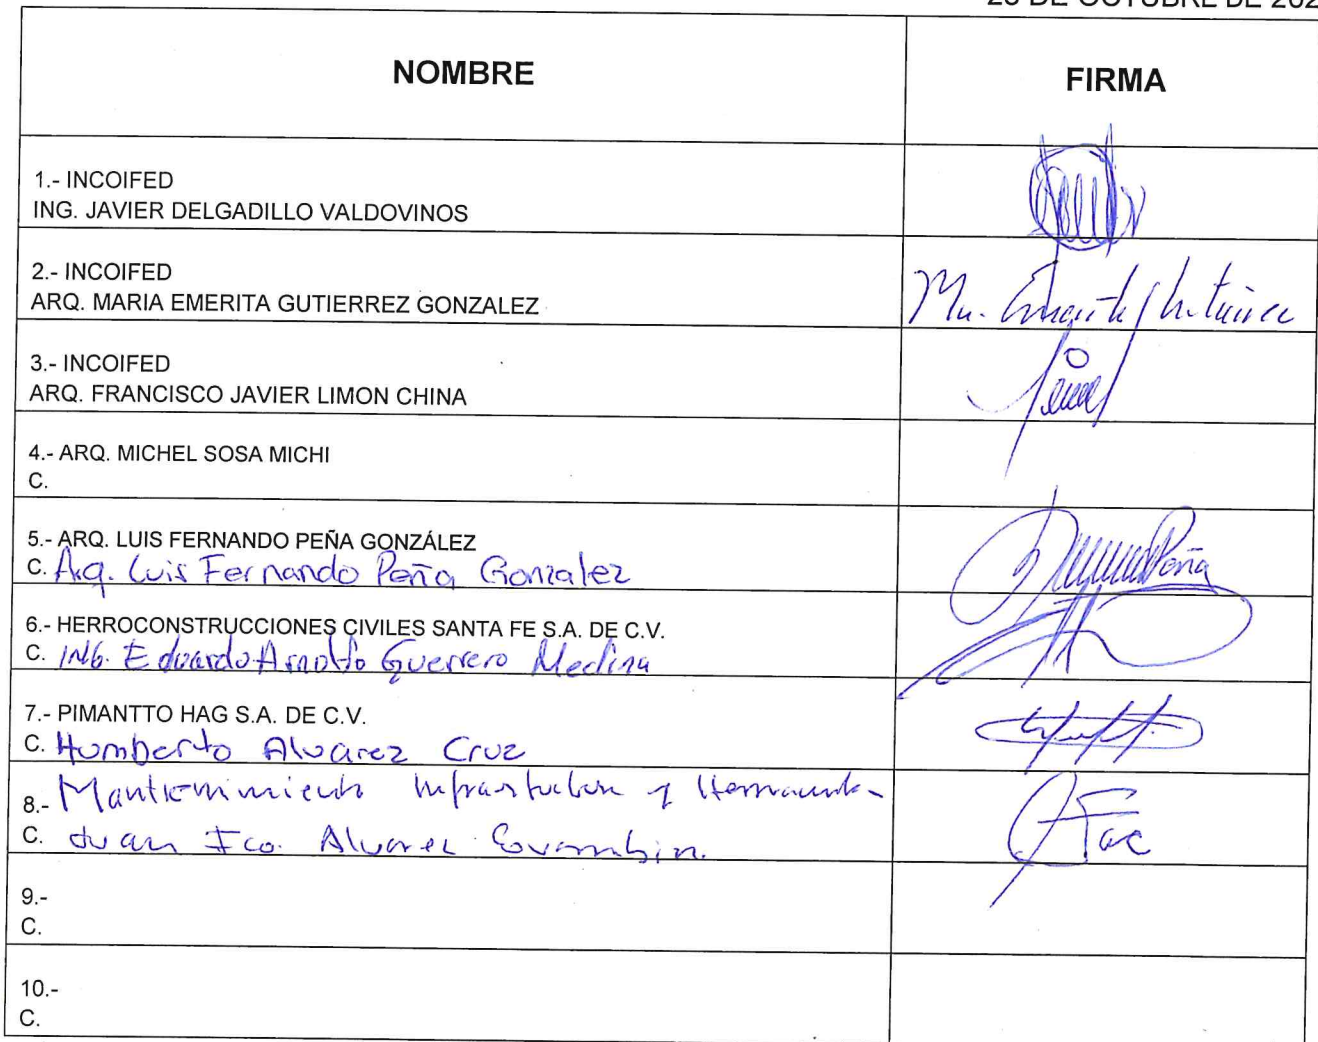 DE OCTUBRE DE 202
NOMBRE
FIRMA
1.- INCOIFED
ING. JAVIER DELGADILLO VALDOVINOS
2.- INCOIFED
ARQ. MARIA EMERITA GUTIERREZ GONZALEZ
Ma. Emerita Gutierrez
3.- INCOIFED
ARQ. FRANCISCO JAVIER LIMON CHINA
4.- ARQ. MICHEL SOSA MICHI
C.
5.- ARQ. LUIS FERNANDO PEÑA GONZÁLEZ
C. Arq. Luis Fernando Peña Gonzalez
Peña
6.- HERROCONSTRUCCIONES CIVILES SANTA FE S.A. DE C.V.
C. ING. Eduardo Arnoldo Guerrero Medina
7.- PIMANTTO HAG S.A. DE C.V.
C. Humberto Alvarez Cruz
8.- Mantenimiento Infraestructura y
C. Juan Fco. Alvarez
9.-
C.
10.-
C.